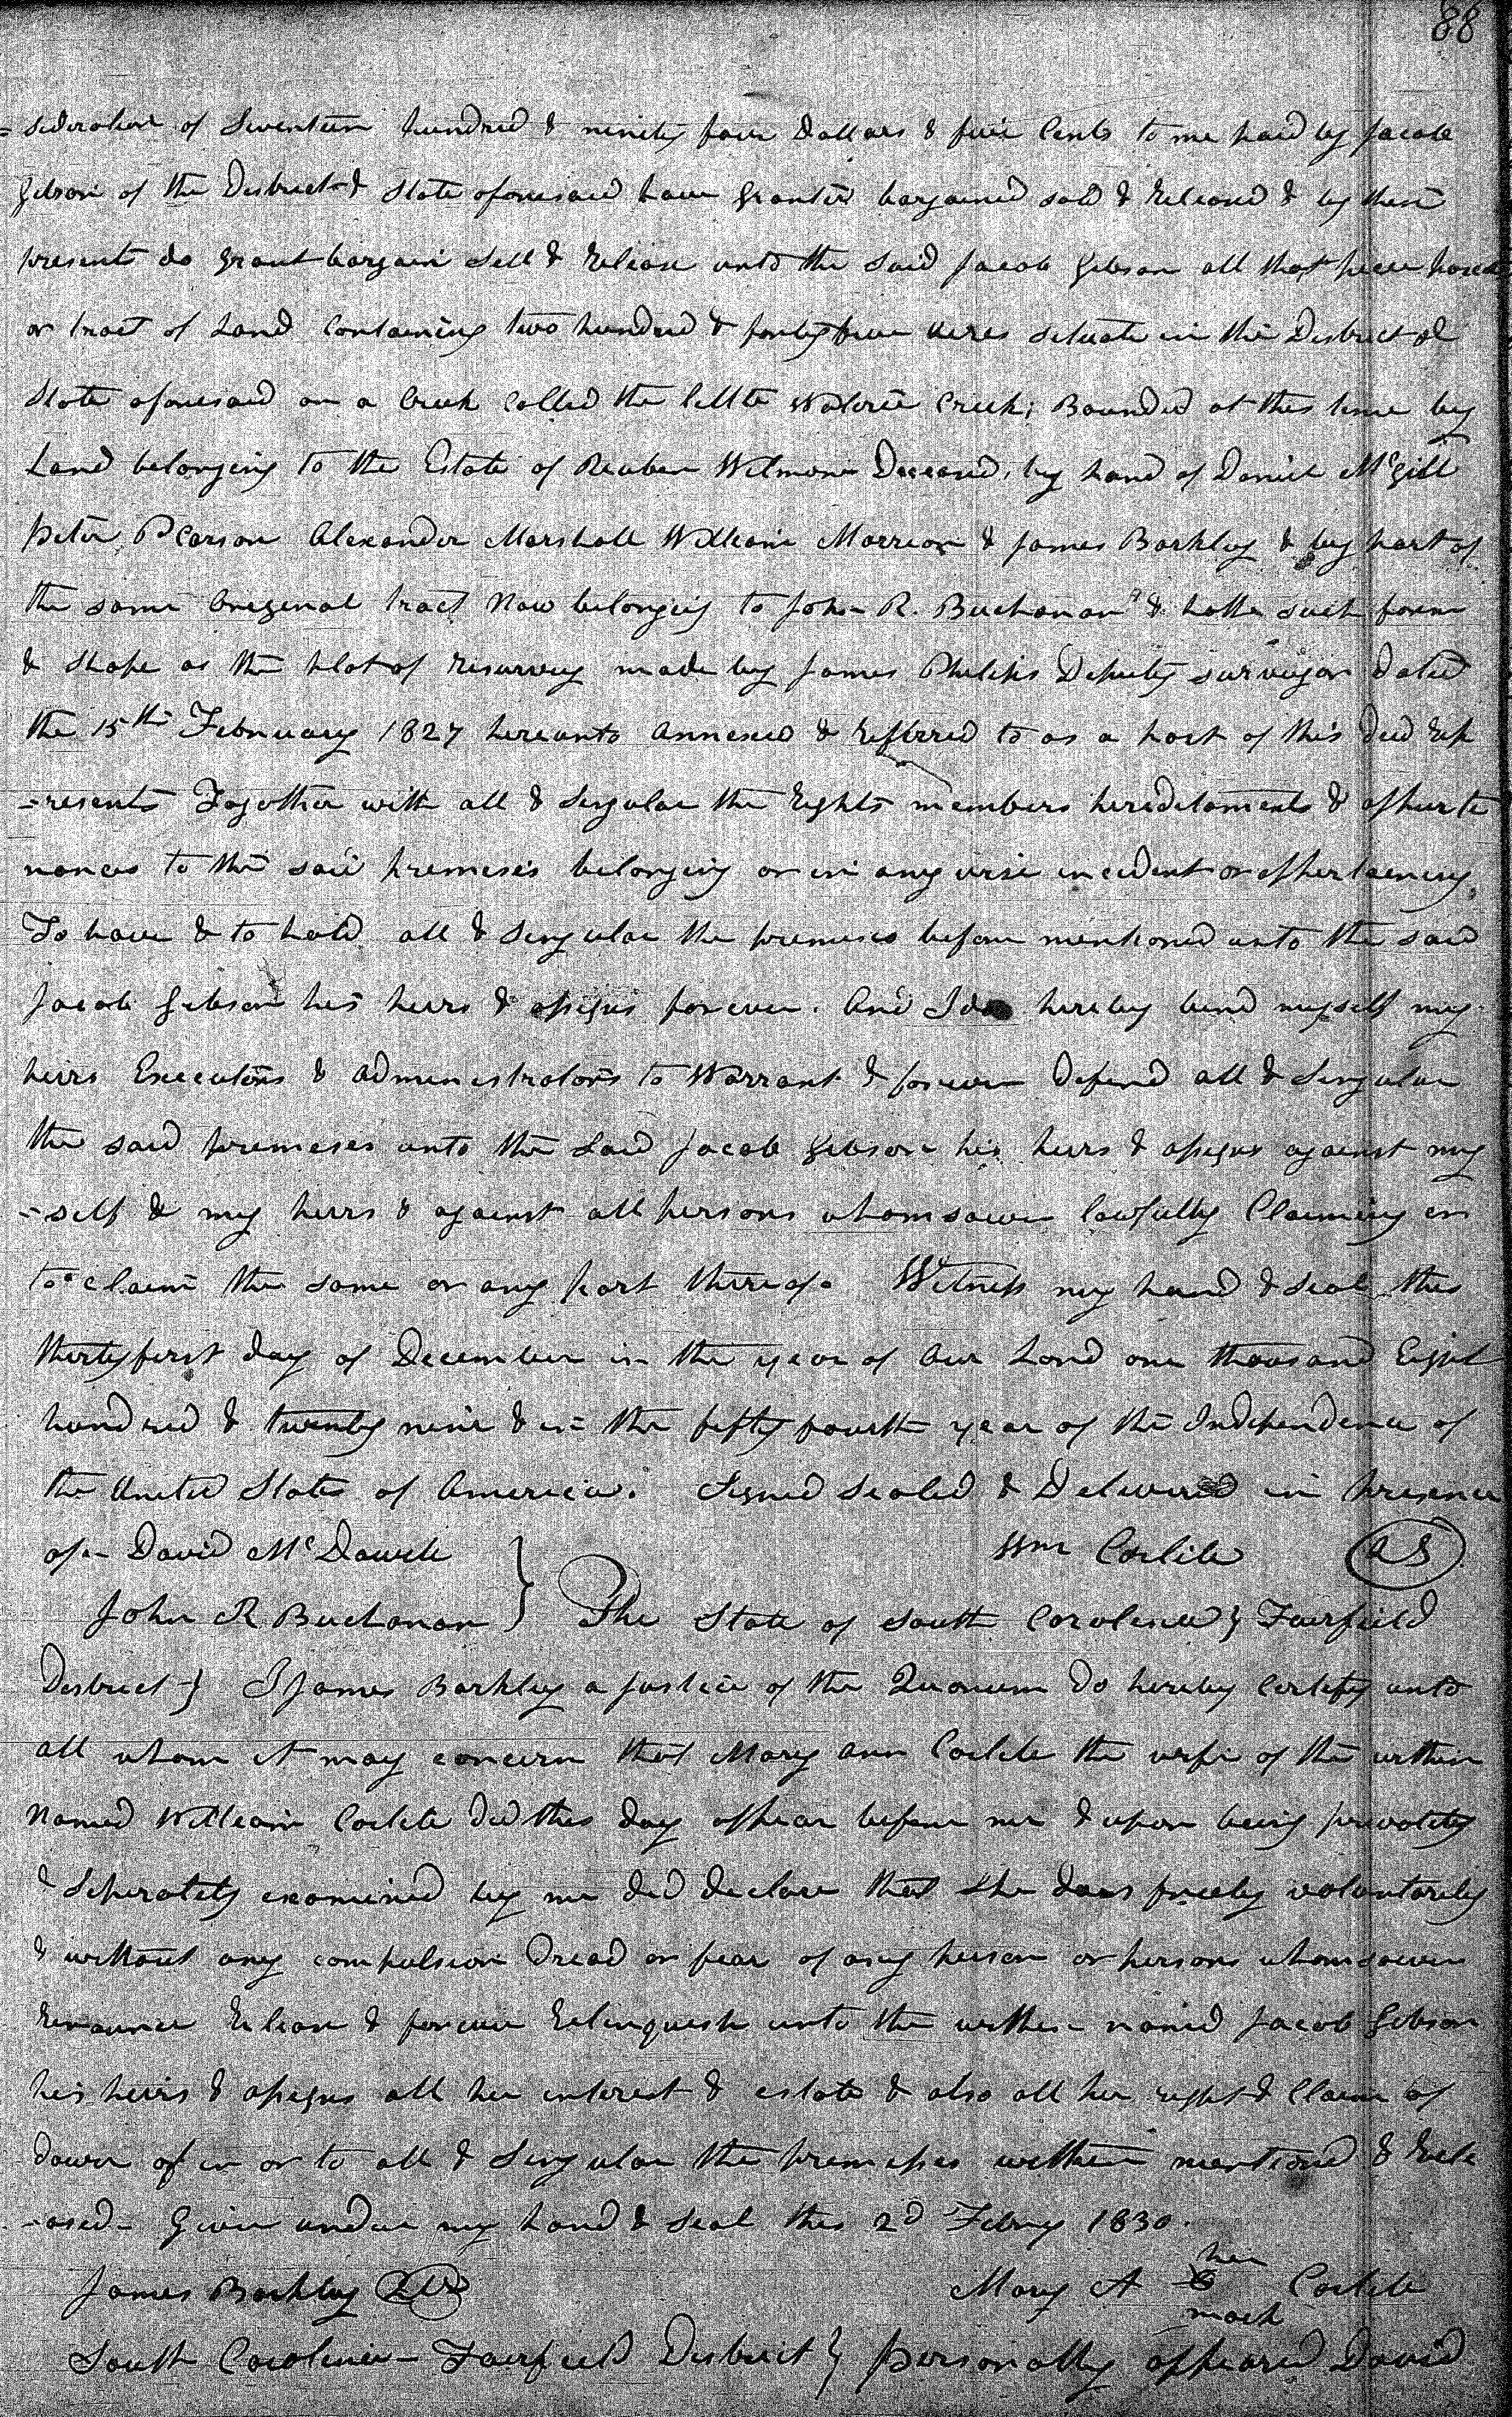 88
= sideration of Seventeen hundred & ninety four Dollars & five Cents to me paid by Jacob
Gibson of the District & State aforesaid have granted bargained sold & Released & by these
presents do grant bargain Sell & Release unto the said Jacob Gibson all that piece parcel
or tract of Land Containing two hundred & forty five acres situate in the District &
State aforesaid on a Creek Called the little Wateree Creek; Bounded at this time by
Land belonging to the Estate of Reuben Wilmore Deceased, by land of Daniel McGill
Peter Pearson Alexander Marshall William Morrison & James Barkley & by part of
the same Original tract Now belonging to John R. Buchanan & hath such form
& Shape as the plat of resurvey made by James Philips Deputy surveyor dated
the 15th February 1827 hereunto annexed & Refferred to as a part of this deed Rep
-resents Together with all & Singular the Rights members hereditaments & appurte
nances to the said premises belonging or in any wise incident or appertaining.
To have & to hold all & Singular the premises before mentioned unto the said
Jacob Gibson his heirs & assigns forever. And I do hereby bind myself my
heirs Executors & administrators to Warrant & forever Defend all & Singular
the said premises unto the said Jacob Gibson his heirs & assigns against my
-self & my heirs & against all persons whomsoever lawfully Claiming or
to claim the same or any part thereof. Witness my hand & Seal this
thirty first day of December in the year of Our Lord one thousand Eight
hundred & twenty nine & in the fifty fourth year of the Independence of
the United States of America. Signed Sealed & Delivered in presence
of - David McDowell } Wm Carlile LS
John R Buchanan } The State of South Carolina } Fairfield
District } I James Barkley a Justice of the Quorum do hereby Certify unto
all whom it may concern that Mary Ann Carlile the wife of the within
Named William Carlile did this day appear before me & upon being privately
& Seperately examined by me did declare that she does freely voluntarily
& without any compulsion Dread or fear of any person or persons whomsoever
Renounce Release & forever Relinquish unto the within named Jacob Gibson
his heirs & assigns all her interest & estate & also all her right & Claim of
dower of in or to all & Singular the premises within mentioned & Rele
-ased - Given under my hand & Seal this 2d Febry 1830.
her
James Barkley Mary A Carlile
mark
South Carolina - Fairfield District } Personally appeared David